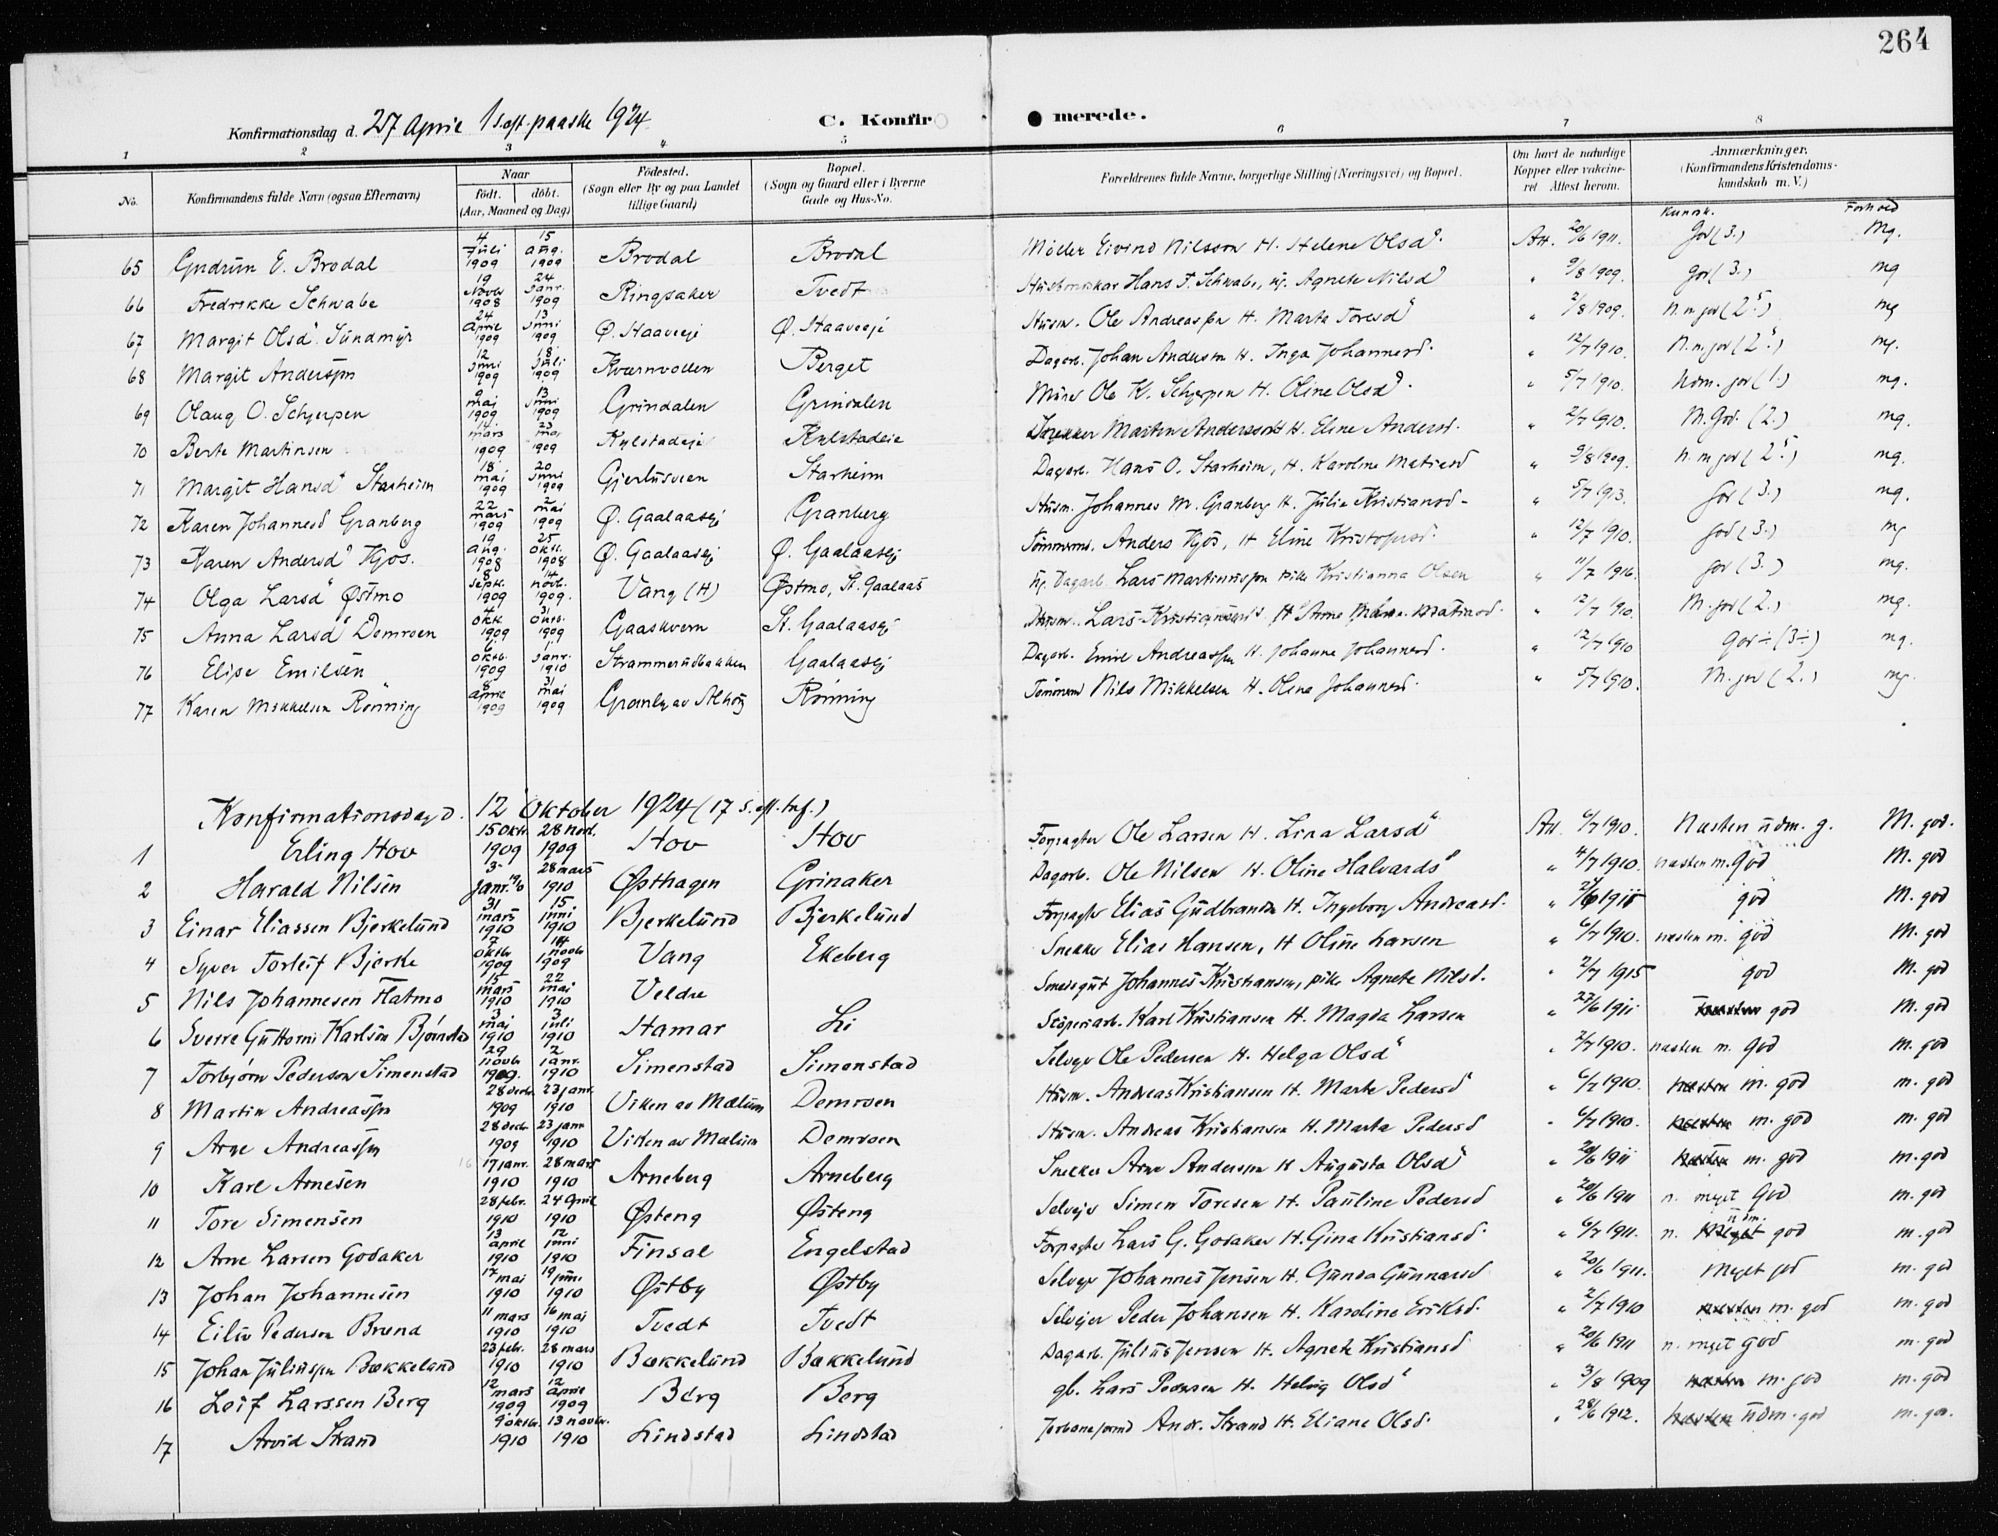 264
Konfirmationsdag d. 27 April 1 s. eft. paaske 1924. C. Konfirmerede.
1 2 3 4. 5 6 7 8
No. Konfirmandens fulde Navn (ogsaa Efternavn) Naar født. døbt. (Aar, Maaned og Dag) Fødested. (Sogn eller By og paa Landet tillige Gaard) Bopæl. (Sogn og Gaard eller i Byerne Gade og Hus-No. Forældrenes fulde Navne, borgerlige Stilling (Næringsvei) og Bopæl. Om havt de naturlige Kopper eller vakcineret Attest herom. Anmærkninger. (Konfirmandens Kristendomskundskab m. V.)
Kunnsk. Forhold
65 Gudrun E. Brodal 4 Juli 1909 15 aug. 1909 Brodal Brodal Møller Eivind Nilsson H. Helene Olsd. Att. 20/6 1911. God (3.) Mg.
66 Fredrikke Schwabe 19 Novb 1908 24 Janr. 1909 Ringsaker Tvedt Hans F. Schwabe, Agnete Nilsd " 9/8 1909. god (3.) mg
67 Margit Olsd. Sundmyr 24 April 1909 13 Juni 1909 Ø. Haaveeje Ø. Haaveeje Husm. Ole Andreassen H. Marta Toresd " 2/8 1909. N. m god (2.) mg
68 Margit Anderssen 12 Juni 1909 18 Juli 1909 Kværnvollen Berget Dagarb. Johan Anderssen H. Inga Johannesd. " 12/7 1910. N. m. god (2.) mg.
69 Olaug O. Schjerpen 9 mai 1909 13 Juni 1909 Grindalen Grindalen Murer Ole K. Schjerpen H. Oline Olsd. " 5/7 1910. Udm. god (1.) mg.
70 Berte Martinsen 14. mars 1909 23 mai 1909 Kylstadeje Kylstadeie Snekker Martin Anderssen H. Eline Andersd. " 2/7 1910. M. God. (2.) mg.
71 Margit Hansd Starheim 18 mai 1909 20 Juni 1909 Gjerlusveen Starheim Dagarb. Hans O. Starheim, H. Karoline Matiesd " 9/8 1909. n. m god (2.) mg.
72 Karen Johannesd Granberg 22 mars 1909 2 mai 1909 Ø. Gaalaasej Granberg Husm. Johannes M. Granberg H. Julie Kristiansd " 5/7 1913. God (3.) mg.
73 Karen Andersd Kjos. 19 aug. 1908 25 Okt. 1908 Ø. Gaalaasej Ø. Gaalaasej Tømmerm. Anders Kjos, H Eline Kristofersd. " 12/7 1910. god (3.) mg
74 Olga Larsd Østmo 8 Septb. 1909 14 novb. 1909. Vang (H) Østmo, St. Gaalaas Ug. Dagarb. Lars Martinussen pike Kristianna Olsen " 11/7 1916. god (3.) mg.
75 Anna Larsd Demroen 4 Okt. 1909 31 Okt. 1909 Gaaskvern St. Gaalaasej Husm. Lars Kristiansen H Anne Matiesd. " 12/7 1910. M. god (2.) mg.
76 Elise Emilsen 6 Oktb. 1909 1 Janr. 1910 Strammerudbakken Gaalaasej Dagarb. Emil Andreassen H. Johanne Johannesd. " 12/7 1910 God ÷ (3÷) mg.
77 Karen Mikkelsen Rønning 8 april 1909 31 mai 1909 Granby av Alhøy Rønning Tømmerm Nils Mikkelsen H. Olina Johannesd. " 5/7 1910. M. god (2.) mg.
Konfirmationsdag d. 12 Oktober 1924 (17 s. eft. tref.)
1 Erling Hov 15 Oktr. 1909 28 Novb. 1909 Hov Hov Forpagter Ole Larsen H. Lina Larsd Att. 6/7 1910. Næsten udm. g. M. god.
2 Harald Nilsen 3 Janr. 1910 28 mars 1910 Østhagen Grinaker Dagarb. Ole Nilsen H. Oline Halvorsd " 4/7 1910. næsten m. God M. god
3 Einar Eliassen Bjerkelund 31 mars 1910 15. juni 1910 Bjerkelund Bjerkelund Forpagter Elias Gudbrandsen H. Ingeborg Andreasd. " god M. god
4 Syver Torleif Bjerke 7 Oktb. 1909 14 novb 1909 Vang Ekeberg Snekker Elias Hansen, H Oline Larsen " 6/7 1910. næsten m. god M. god
5 Nils Johannesen Flatmo 15 mars 1910 22 mai 1910 Veldre Smedegut Johannes Kristiansen, pike Agnete Nilsd. " 2/7 1915 god M. god
6 Sverre Guttorm Karlsen Bjørnstad 3 mai 1910 3 juli 1910 Hamar Li Støperiarb. Karl Kristiansen H. Magda Larsen " 27/6 1911 næsten god M. god
7 Torbjørn Pederson Simenstad 29 novb. 1909. 2 janr. 1910 Simenstad Simenstad Selveier Ole Pedersen H. Helga Olsd " 2/7 1910. næsten m. God m. god
8 Martin Andreassen 28 decbr. 1909 23 janr. 1910 Viken av Mælum Demroen Husm. Andreas Kristiansen H. Marte Pedersd " 6/7 1910. næsten m. god m. god
9 Arne Andreassen 28 decb 1909 23 janr 1910 Viken av Mælum Demroen Husm. Andreas Kristiansen H. Marta Pedersd " 6/7 1910. næsten m. god m. god
10 Karl Arnesen 17 janr. 1910 28 mars 1910 Arneberg Arneberg Snekker Arne Andersen H Augusta Olsd " 20/6 1911 næsten m. god m. god
11 Tore Simensen 28 febr. 1910 24 April 1910 Østeng Østeng Selveier Simen Toresen H. Pauline Pedersd " 20/6 1911 n. myet God m. god
12 Arne Larsen Godaker 13 april 1910 12 juni 1910 Finsal Engelstad Forpagter Lars G. Godaker H. Gina Kristiansd. " 6/7 1911. n. meget udm. god m. god
13 Johan Johannesen 17 mai 1910 19 juni 1910 Østby Østby Selveier Johannes Jensen H. Gunda Gunnarsd " 20/6 1911. Myet god m. god
14 Eiliv Pederson Brænd 11 mars 1910 16 mai 1910 Tvedt Tvedt Selveier Peder Johansen H. Karoline Eriksd. " 2/7 1910 næsten m. god m. god
15 Johan Juliussen Bækkelund 23 febr. 1910 28 mars 1910 Bækkelund Bækkelund Dagarb. Julius Jensen H. Agnete Kristiansd " 20/6 1911 n. myet god m. god
16 Leif Larssen Berg 12 mars 1909 12 april 1909 Berg Berg gb. Lars Pedersen H. Helvig Olsd " 3/8 1909 næsten m. god m. god
17 Arvid Strand 9 oktbr. 1910 13 novbr. 1910 Lindstad Lindstad Jerbaneformd Andr. Strand H. Eliane Olsd. " 28/6 1912. næsten udm. god m. god.